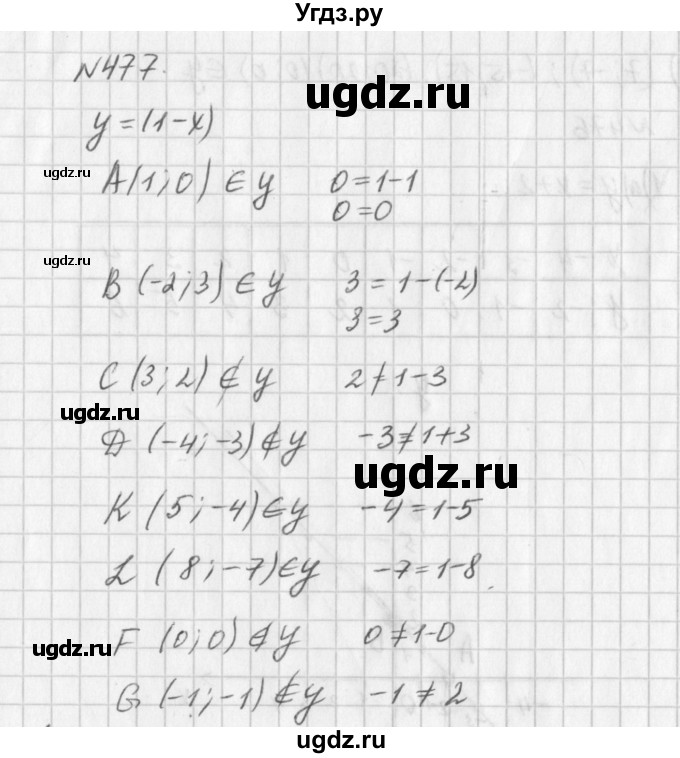 Угдз.ру
№477.
ugdz.ru
y=(1-x)
ugdz.ru
A(1;0)∈y 0=1-1
0=0
ugdz.ru
B(-2;3)∈y 3=1-(-2)
3=3
C(3;2)∉y 2≠1-3
ugdz.ru
D(-4;-3)∉y -3≠1+3
ugdz.ru
K(5;-4)∈y -4=1-5
L(8;-7)∈y -7=1-8
F(0;0)∉y 0≠1-0
ugdz.ru
G(-1;-1)∉y -1≠2
ugdz.ru